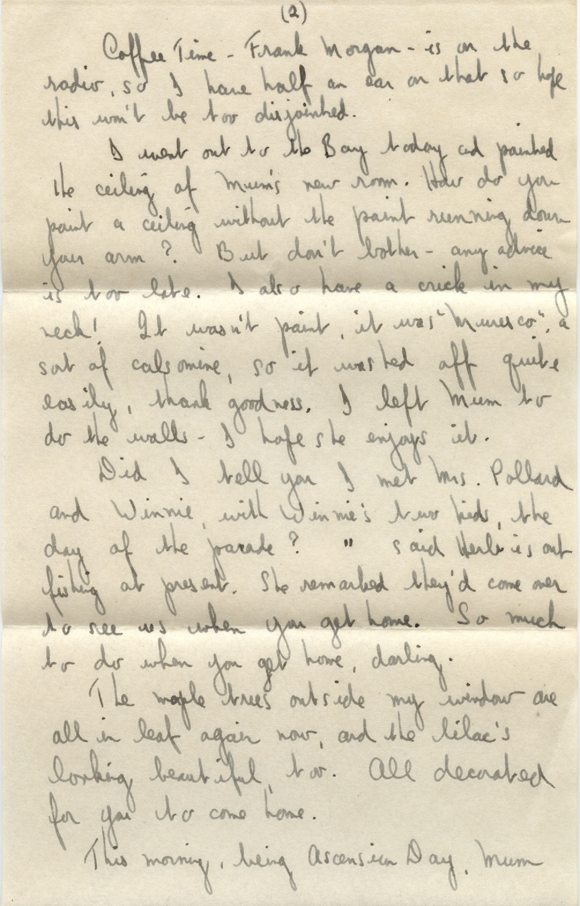 (2)
Coffee Time - Frank Morgan - is on the
radio, so I have half an ear on that so hope
this won't be too disjointed.
I went out to the Bay today and painted
the ceiling of Mum's new room. How do you
paint a ceiling without the paint running down
your arm? But don't bother - any advice
is too late. I also have a crick in my
neck! It wasn't paint, it was "Muresco", a
sort of calsomine, so it washed off quite
easily, thank goodness. I left Mum to
do the walls - I hope she enjoys it.
Did I tell you I met Mrs. Pollard
and Winnie, with Winnie's two kids, the
day of the parade? " said Herb is out
fishing at present. She remarked they'd come over
to see us when you get home. So much
to do when you get home, darling.
The maple trees outside my window are
all in leaf again now, and the lilac's
looking beautiful, too. All decorated
for you to come home.
This morning, being Ascension Day, Mum